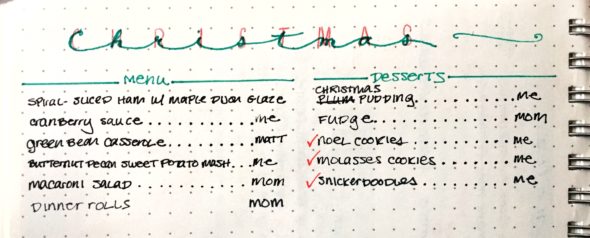 Christmas
menu
SPIRAL-SLICED HAM W/ MAPLE DIJON GLAZE
cranberry sauce............me
green bean casserole............MATT
BUTTERNUT PECAN SWEET POTATO MASH...me
macaroni salad............mom
Dinner rolls mom
Desserts
CHRISTMAS
PLUM PUDDING............me
FUDGE............mom
✓NOEL COOKIES............me
✓MOLASSES COOKIES............me
✓SNICKERDOODLES............me